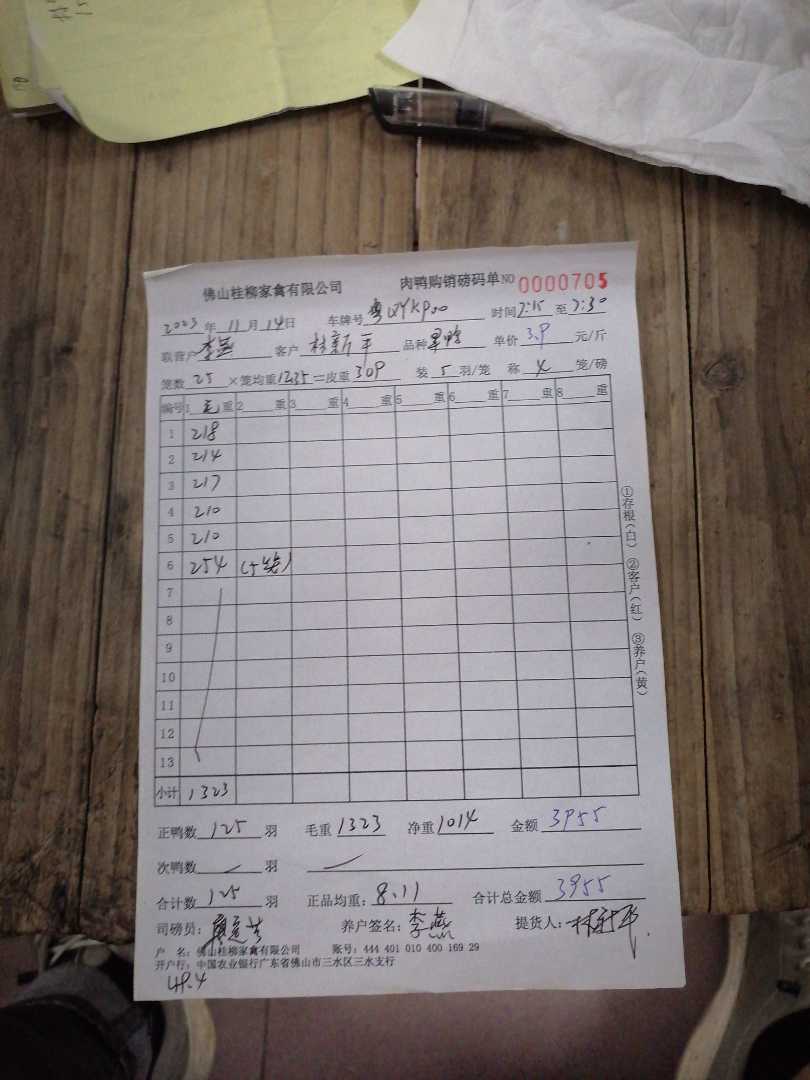 佛山桂柳家禽有限公司 肉鸭购销磅码单 NO 0000705
2023 年 11 月 14 日 车牌号 时间 7:15 至 7:30
联营户 李燕 客户 林新平 品种 单价 3.9 元/斤
笼数 25 ×笼均重 12.35 =皮重 309 装 5 羽/笼 称 4 笼/磅
编号 1 毛 重 2 重 3 重 4 重 5 重 6 重 7 重 8 重
1 218
2 214
3 217
4 210
5 210
6 254 (5笼)
7
8
9
10
11
12
13
小计 1323
①存根(白) ②客户(红) ③养户(黄)
正鸭数 125 羽 毛重 1323 净重 1014 金额 3955
次鸭数 羽
合计数 125 羽 正品均重: 8.11 合计总金额 3955
司磅员: 养户签名: 李燕 提货人: 林新平
户 名: 佛山桂柳家禽有限公司 账号: 444 401 010 400 169 29
开户行: 中国农业银行广东省佛山市三水区三水支行
48.4